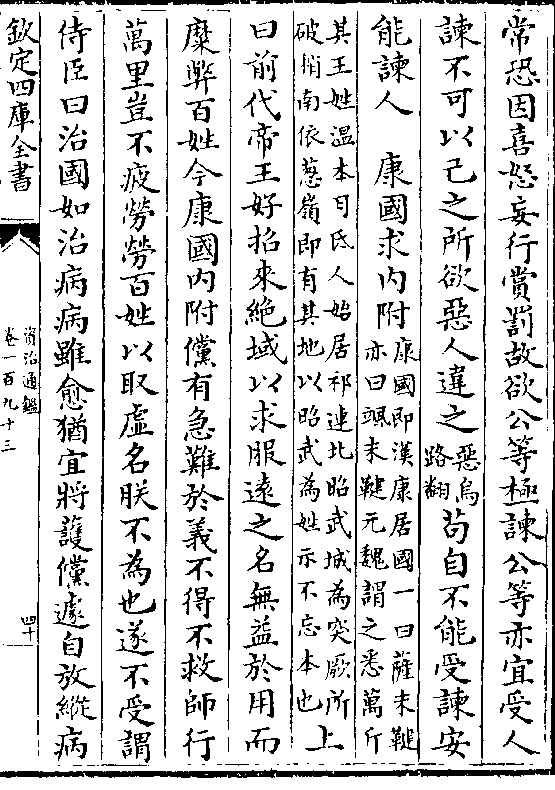 常恐因喜怒妄行賞罰故欲公等極諫公等亦宜受人
諫不可以己之所欲惡人違之惡烏路翻苟自不能受諫安
能諫人　康國求内附康國即漢康居國一曰薩末鞬亦曰颯末鞬元魏謂之悉萬斤
其王姓温本月氏人始居祁連北昭武城為突厥所破稍南依葱嶺即有其地以昭武為姓示不忘本也上
曰前代帝王好招來絶域以求服逺之名無益於用而
糜弊百姓今康國内附儻有急難於義不得不救師行
萬里豈不疲勞勞百姓以取虚名朕不為也遂不受謂
侍臣曰治國如治病病雖愈猶宜將護儻遽自放縱病
欽定四庫全書
資治通鑑
卷一百九十三
四十